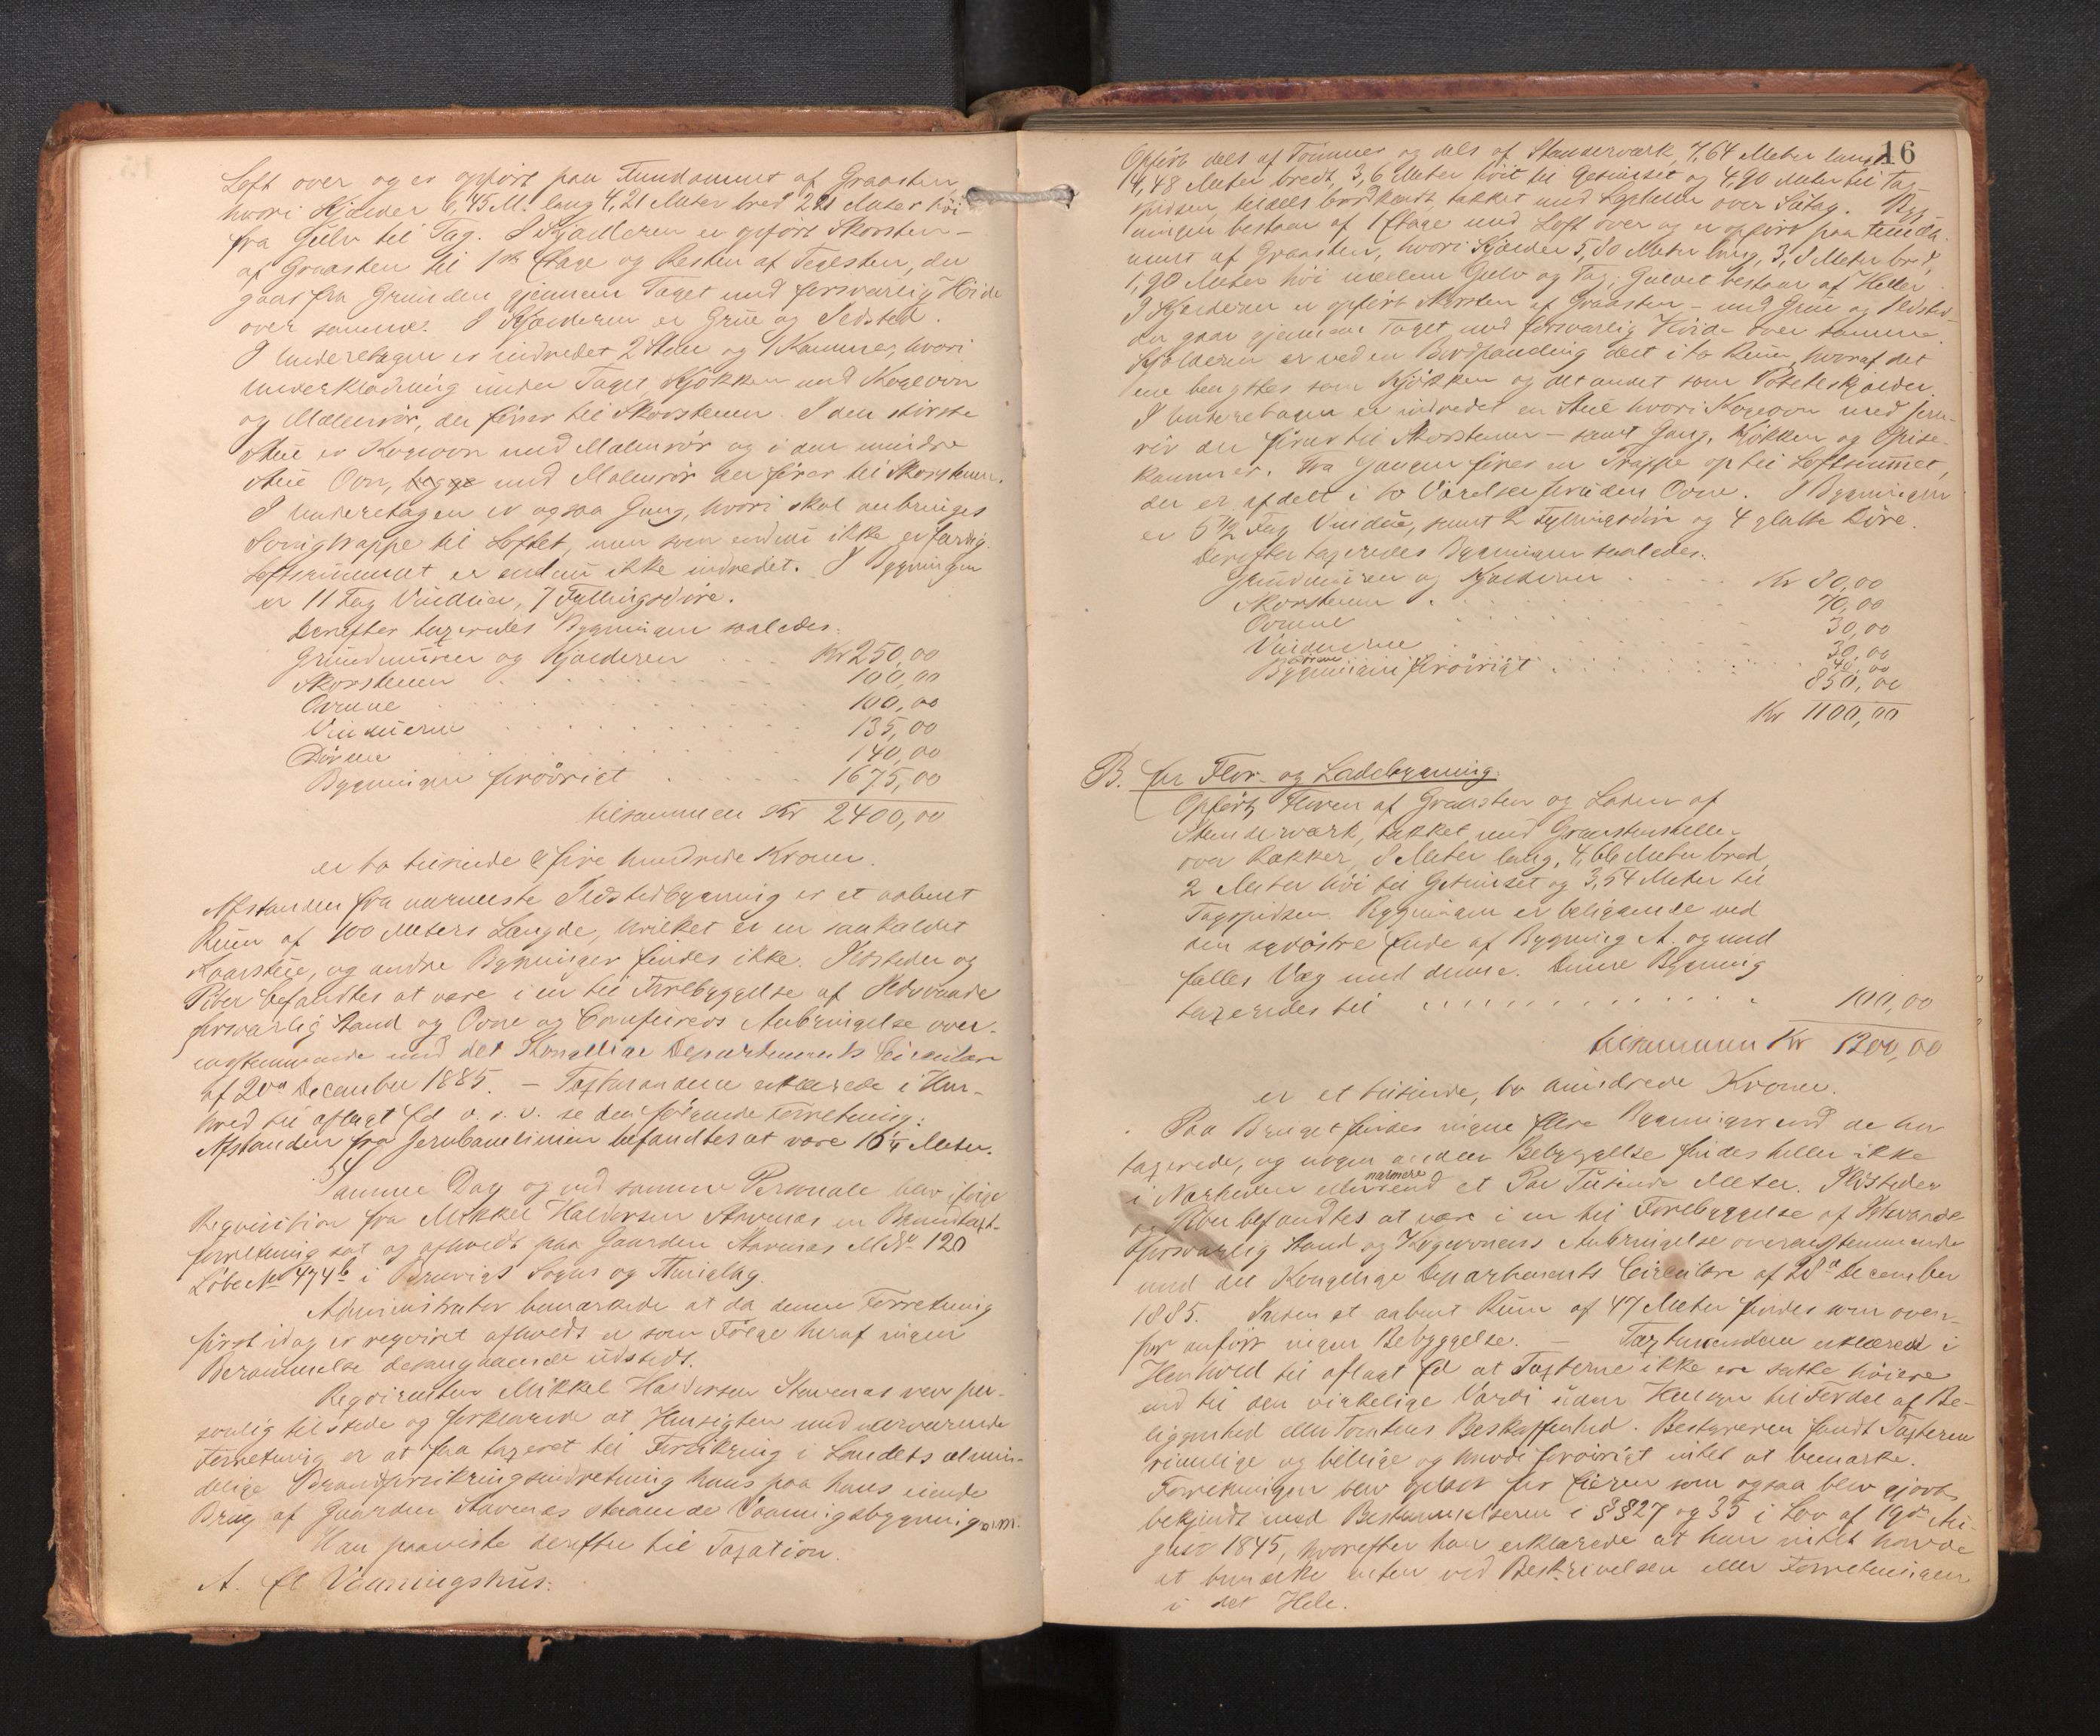 Loft over og er opført paa Fundament af Graasten
hvori Kjælder 6,45 M. lang 4,21 Meter bred 2,21 Meter høi
fra Gulv til Tag. I Kjælderen er opført Skorsten -
af Graasten til 1ste Etage og Resten af Teglsten, der
gaar fra Grunden gjennem Taget med forsvarlig Høide
over samme. I Kjælderen er Grue og Ildsted.
I Underetagen er indredet 2 Stuer og 1 Kammer, hvori
Underklædning under Taget, Kjøkken med Kogeovn
og Malmrør, der fører til Skorstenen. I den største
Stue er Kogeovn med Malmrør og i den mindre
Stue Ovn, begge med Malmrør der fører til Skorstenen.
I Underetagen er ogsaa Gang, hvori skal anbringes
Svingtrappe til Loftet, men som endnu ikke er færdig.
Loftsrummet er endnu ikke indredet. I Bygningen
er 11 Fag Vinduer, 7 Fyllingsdøre.
Derefter taxeredes Bygningen saaledes:
Grundmuren og Kjælderen . . . Kr 250,00
Skorstenen . . . 100,00
Ovnene . . . 100,00
Vinduerne . . . 135,00
Dørene . . . 140,00
Bygningen forøvrigt . . . 1675,00
tilsammen Kr 2400,00
er to tusinde & fire hundrede Kroner.
Afstanden fra nærmeste Ildstedbygning er et aabent
Rum af 100 Meters Længde, hvilket er en saakaldet
Kaarstue, og andre Bygninger findes ikke. Ildsteder og
Piber befandtes at være i en til Forebyggelse af Ildsvaade
forsvarlig Stand og Ovne og Comfurers Anbringelse over-
ensstemmende med det Kongelige Departements Circulære
af 20de December 1885. - Taxtmændene erklærede i Hen-
hold til aflagt Ed o. s. v. se den følgende Forretning:
Afstanden fra Jernbanelinien befandtes at være 16 1/4 Meter.
Samme Dag og ved samme Personale blev ifølge
Reqvisition fra Mikkel Haldorsen Stavenæs en Brandtaxt-
forretning sat og afholdt paa Gaarden Stavenæs M. No 120
Løbe No 474b i Bruvigs Sogns og Thinglag.
Administrator bemærkede at da denne Forretning
først idag er reqvireret afholdt er som Følge heraf ingen
Berammelse desangaaende udstedt.
Reqvirenten Mikkel Haldorsen Stavenæs var per-
sonlig tilstede og forklarede at Hensigten med nærværende
Forretning er at faa taxeret til Forsikring i Landets almin-
delige Brandforsikringsindretning hans paa hans eiende
Brug af Gaarden Stavenæs staaende Vaaningsbygning m. m.
Han paaviste derefter til Taxation.
A. Et Vaaningshus:
16
Opført dels af Tømmer og dels af Stenderværk, 7,64 Meter langt
4,48 Meter bredt, 3,6 Meter høit til Gesimset og 4,90 Meter til Tag-
spidsen, tildels bordklædt, takket med Lægteheller over Sutag. Byg-
ningen bestaar af 1 Etage med Loft over og er opført paa Funda-
ment af Graasten, hvori Kjælder 5,80 Meter lang, 3,8 Meter bred,
1,90 Meter høi mellem Gulv og Tag; Gulvet bestaar af Heller.
I Kjælderen er opført Skorsten af Graasten - med Grue og Ildsted -
der gaar gjennem Taget med forsvarlig Høide over samme.
Kjælderen er ved en Bordpanding delt i to Rum, hvoraf det
ene benyttes som Kjøkken og det andet som Potetkjælder.
I Underetagen er indredet en Stue hvori Kogeovn med Jern-
rør der fører til Skorstenen - samt Gang, Kjøkken og Spise-
kammer. Fra Gangen fører en Trappe op til Loftsrummet,
der er afdelt i to Værelser foruden Ovne. I Bygningen
er 5 1/2 Fag Vindue, samt 2 Fyllingsdøre og 4 glatte Døre.
Derefter taxeredes Bygningen saaledes:
Grundmuren og Kjælderen . . . Kr 80,00
Skorstenen . . . 70,00
Ovnene . . . 30,00
Vinduerne . . . 30,00
Dørene . . . 40,00
Bygningen forøvrigt . . . 850,00
Kr 1100,00
B. En Flor- og Ladebygning:
Opført, Floren af Graasten og Laden af
Stenderværk, takket med Graastensheller
over Rækker, 8 Meter lang, 4,66 Meter bred,
2 Meter høi til Gesimset og 3,54 Meter til
Tagspidsen. Bygningen er beliggende ved
den sydøstre Ende af Bygning A. og med
fælles Væg med denne. Denne Bygning
taxeredes til . . . 100,00
tilsammen Kr 1200,00
er et tusinde, to hundrede Kroner.
Paa Bruget findes ingen flere Bygninger end de her
taxerede, og nogen anden Bebyggelse findes heller ikke
i Nærheden eller nærmere end et Par Tusinde Meter. Ildsteder
og Piber befandtes at være i en til Forebyggelse af Ildsvaade
forsvarlig Stand og Kogeovnens Anbringelse overensstemmende
med det Kongelige Departements Circulære af 20de December
1885. Inden et aabent Rum af 47 Meter findes som oven-
for anført ingen Bebyggelse. - Taxtmændene erklærede i
Henhold til aflagt Ed at Taxterne ikke ere satte høiere
end til den virkelige Værdi uden Hensyn til Fordel af Be-
liggenhed eller Tomtens Beskaffenhed. Bestyreren fandt Taxterne
rimelige og billige og havde forøvrigt intet at bemærke.
Forretningen blev oplæst for Eieren som ogsaa blev gjort
bekjendt med Bestemmelserne i §§27 og 35 i Lov af 19de Au-
gust 1845, hvorefter han erklærede at han intet havde
at bemærke enten ved Beskrivelsen eller Forretningen
i det Hele.